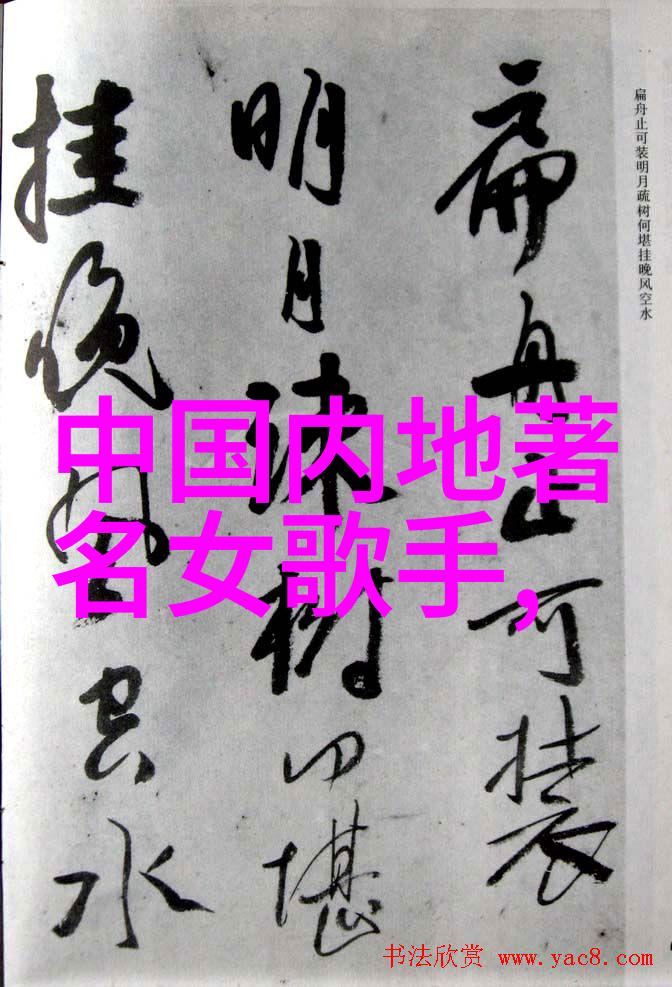 扁舟止可装
明月疏树何堪
挂晚风空水
扁舟止可装明月疏树何堪挂晚风空水
中国内地著
名女歌手,
书法欣赏 www.yac8.com